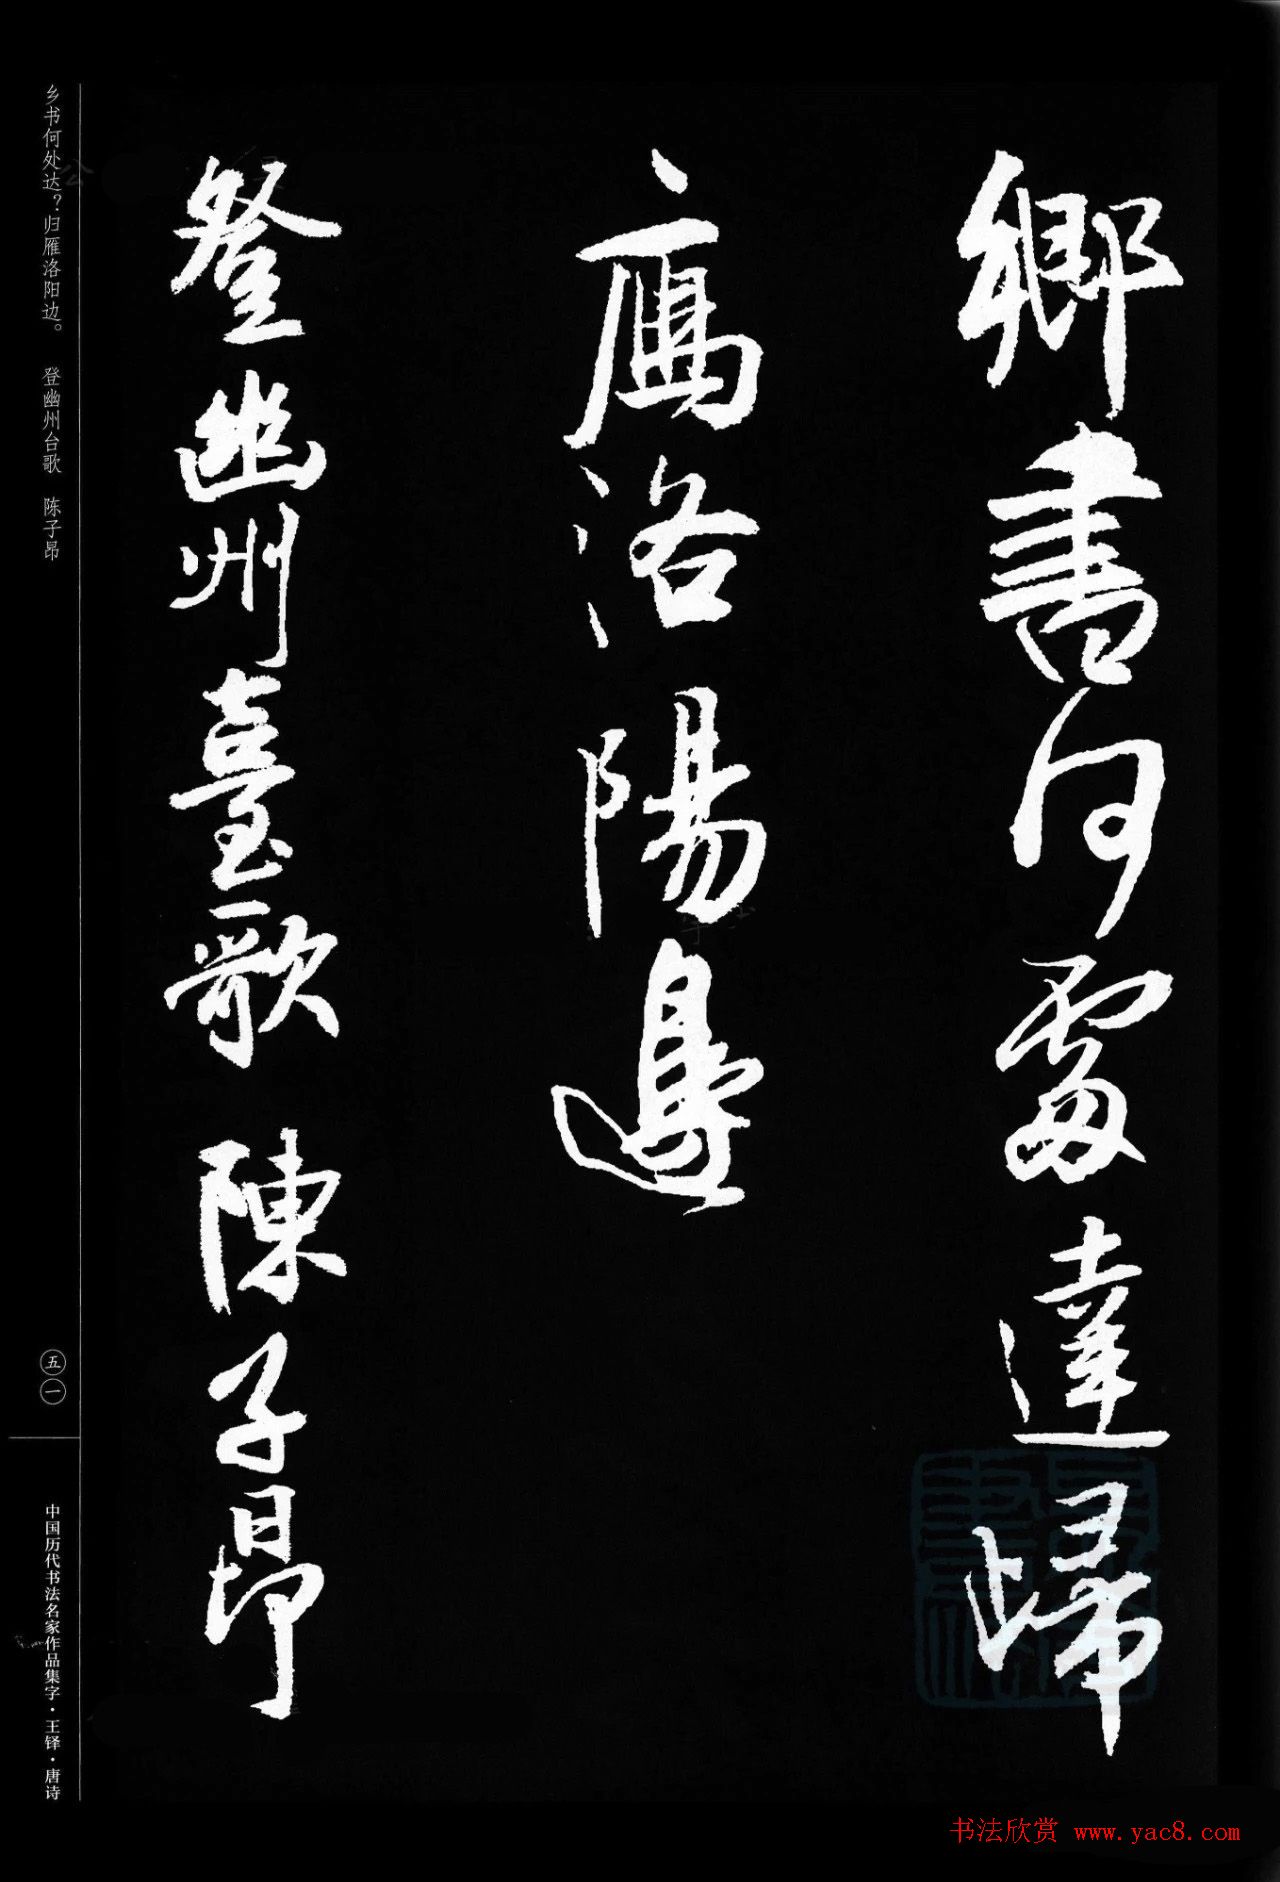 鄉書何處達歸
鴈洛陽邊
登幽州臺歌 陳子昂
乡书何处达？归雁洛阳边。 登幽州台歌 陈子昂
五一
中国历代书法名家作品集字·王铎·唐诗
书法欣赏 www.yac8.com